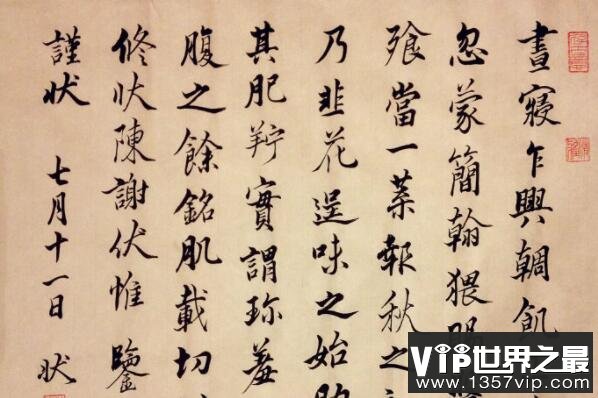 晝寢乍興輖飢
忽蒙簡翰猥賜
飧當一葉報秋之
乃韭花逞味之始助
其肥羜實謂珍羞
腹之餘銘肌載切
修狀陳謝伏惟鑒
謹狀 七月十一日 狀
VIP世界之最
www.1357vip.com